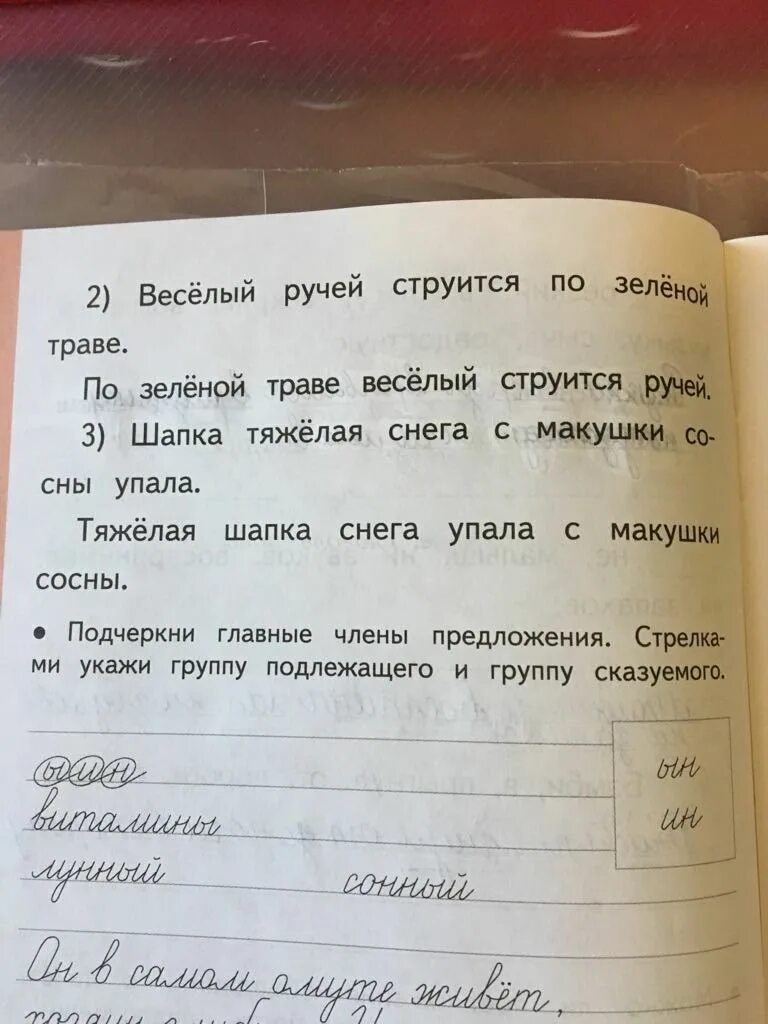 2) Весёлый ручей струится по зелёной
траве.
По зелёной траве весёлый струится ручей.
3) Шапка тяжёлая снега с макушки со-
сны упала.
Тяжёлая шапка снега упала с макушки
сосны.
• Подчеркни главные члены предложения. Стрелка-
ми укажи группу подлежащего и группу сказуемого.
ы и н
ын
витамины
ин
лунный сонный
Он в самом омуте живёт,